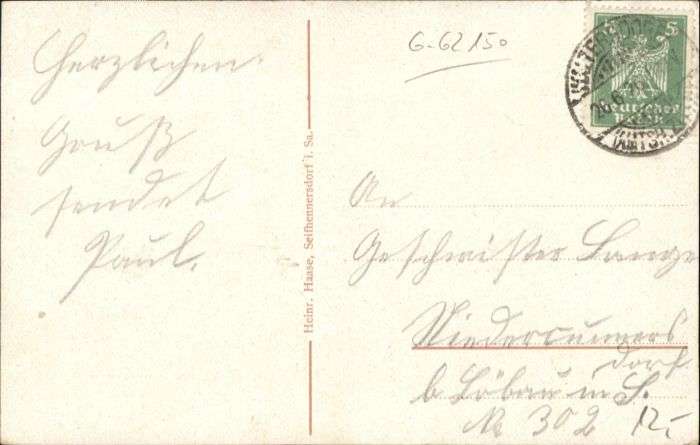 Herzlichen
Gruß
sendet
Paul.
Heinr. Haase, Seifhennersdorf i. Sa.
G-62150
5
Deutsches
Reich
An
Geschwister Lange
Niedercunners
dorf
b Löbau in S.
No 302
12,-